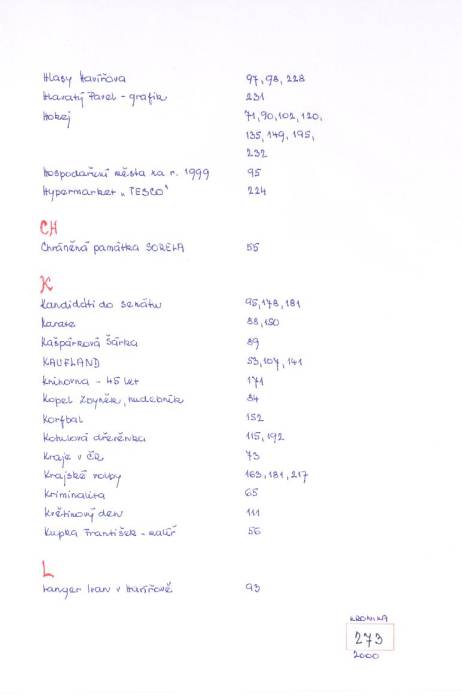 Hlasy Havířova 97, 98, 228
Hlavatý Pavel - grafik 231
Hokej 71, 90, 102, 120,
135, 149, 195,
232
Hospodaření města za r. 1999 95
Hypermarket „TESCO" 224
CH
Chráněná památka SORELA 55
K
Kandidáti do senátu 95, 178, 181
Karate 88, 150
Kašpárková Šárka 89
KAUFLAND 53, 107, 141
Knihovna - 45 let 171
Kopel Zbyněk, hudebník 84
Korfbal 152
Kotulova dřevěnka 115, 192
Kraje v ČR 73
Krajské volby 163, 181, 217
Kriminalita 65
Květinový den 111
Kupka František - malíř 56
L
Langer Ivan v Havířově 93
KRONIKA
273
2000